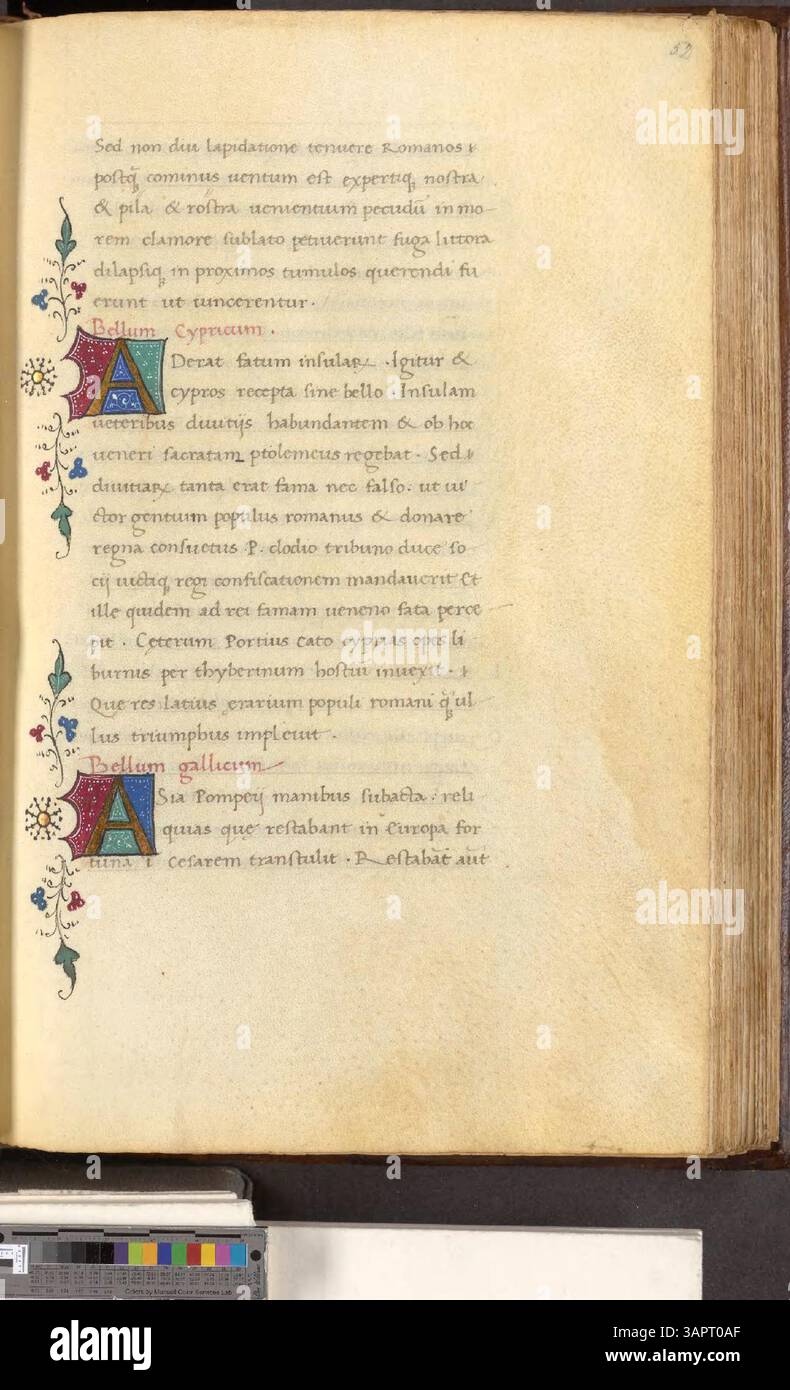 52
Sed non diu lapidatione tenuere Romanos &
postq̃ cominus uentum est expertiq; nostra
& pila & rostra uenientium pecudũ in mo-
rem clamore sublato petiuerunt fuga littora
dilapsiq; in proximos tumulos querendi fu
erunt ut uincerentur.
Bellum Cypricum.
ADerat fatum insulaꝝ. Igitur &
cypros recepta sine bello. Insulam
ueteribus diuitijs habundantem & ob hoc
ueneri sacratam ptolemeus regebat. Sed
diuitiaꝝ tanta erat fama nec falso. ut ui
ctor gentium populus romanus & donare
regna consuetus .P. clodio tribuno duce so
cij uictiq; regi confiscationem mandauerit Et
ille quidem ad rei famam ueneno fata perce
pit. Ceterum Portius Cato cyprias opes li
burnis per thyberinum hostiũ inuexit.
Que res latius erarium populi romani q̃ ul
lus triumphus impleuit.
Bellum gallicum
ASia Pompeij manibus subacta. reli
quias que restabant in Europa for
tuna ĩ Cesarem transtulit. Restabãt aũt
alamy
Colors by Munsell Color Services Lab
alamy
Image ID: 3APT0AF
www.alamy.com